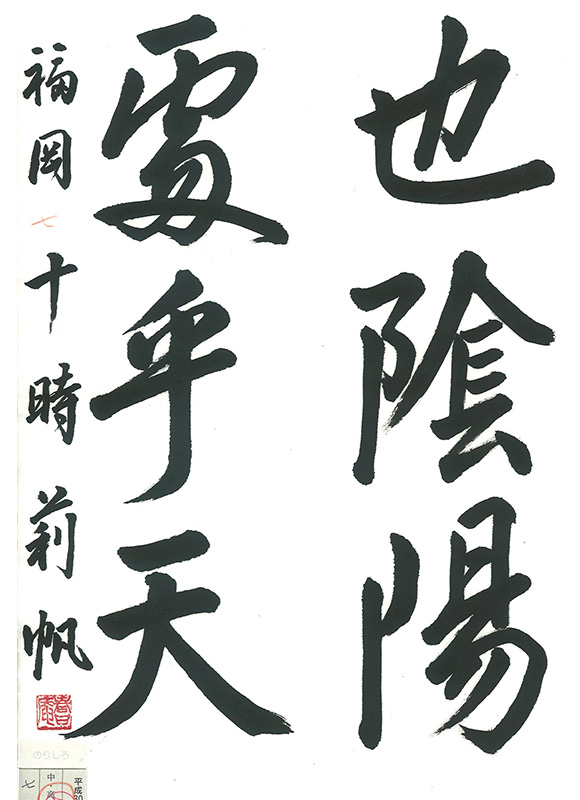 也陰陽
處乎天
福岡 七 十時莉帆
のりしろ
平成
中
七